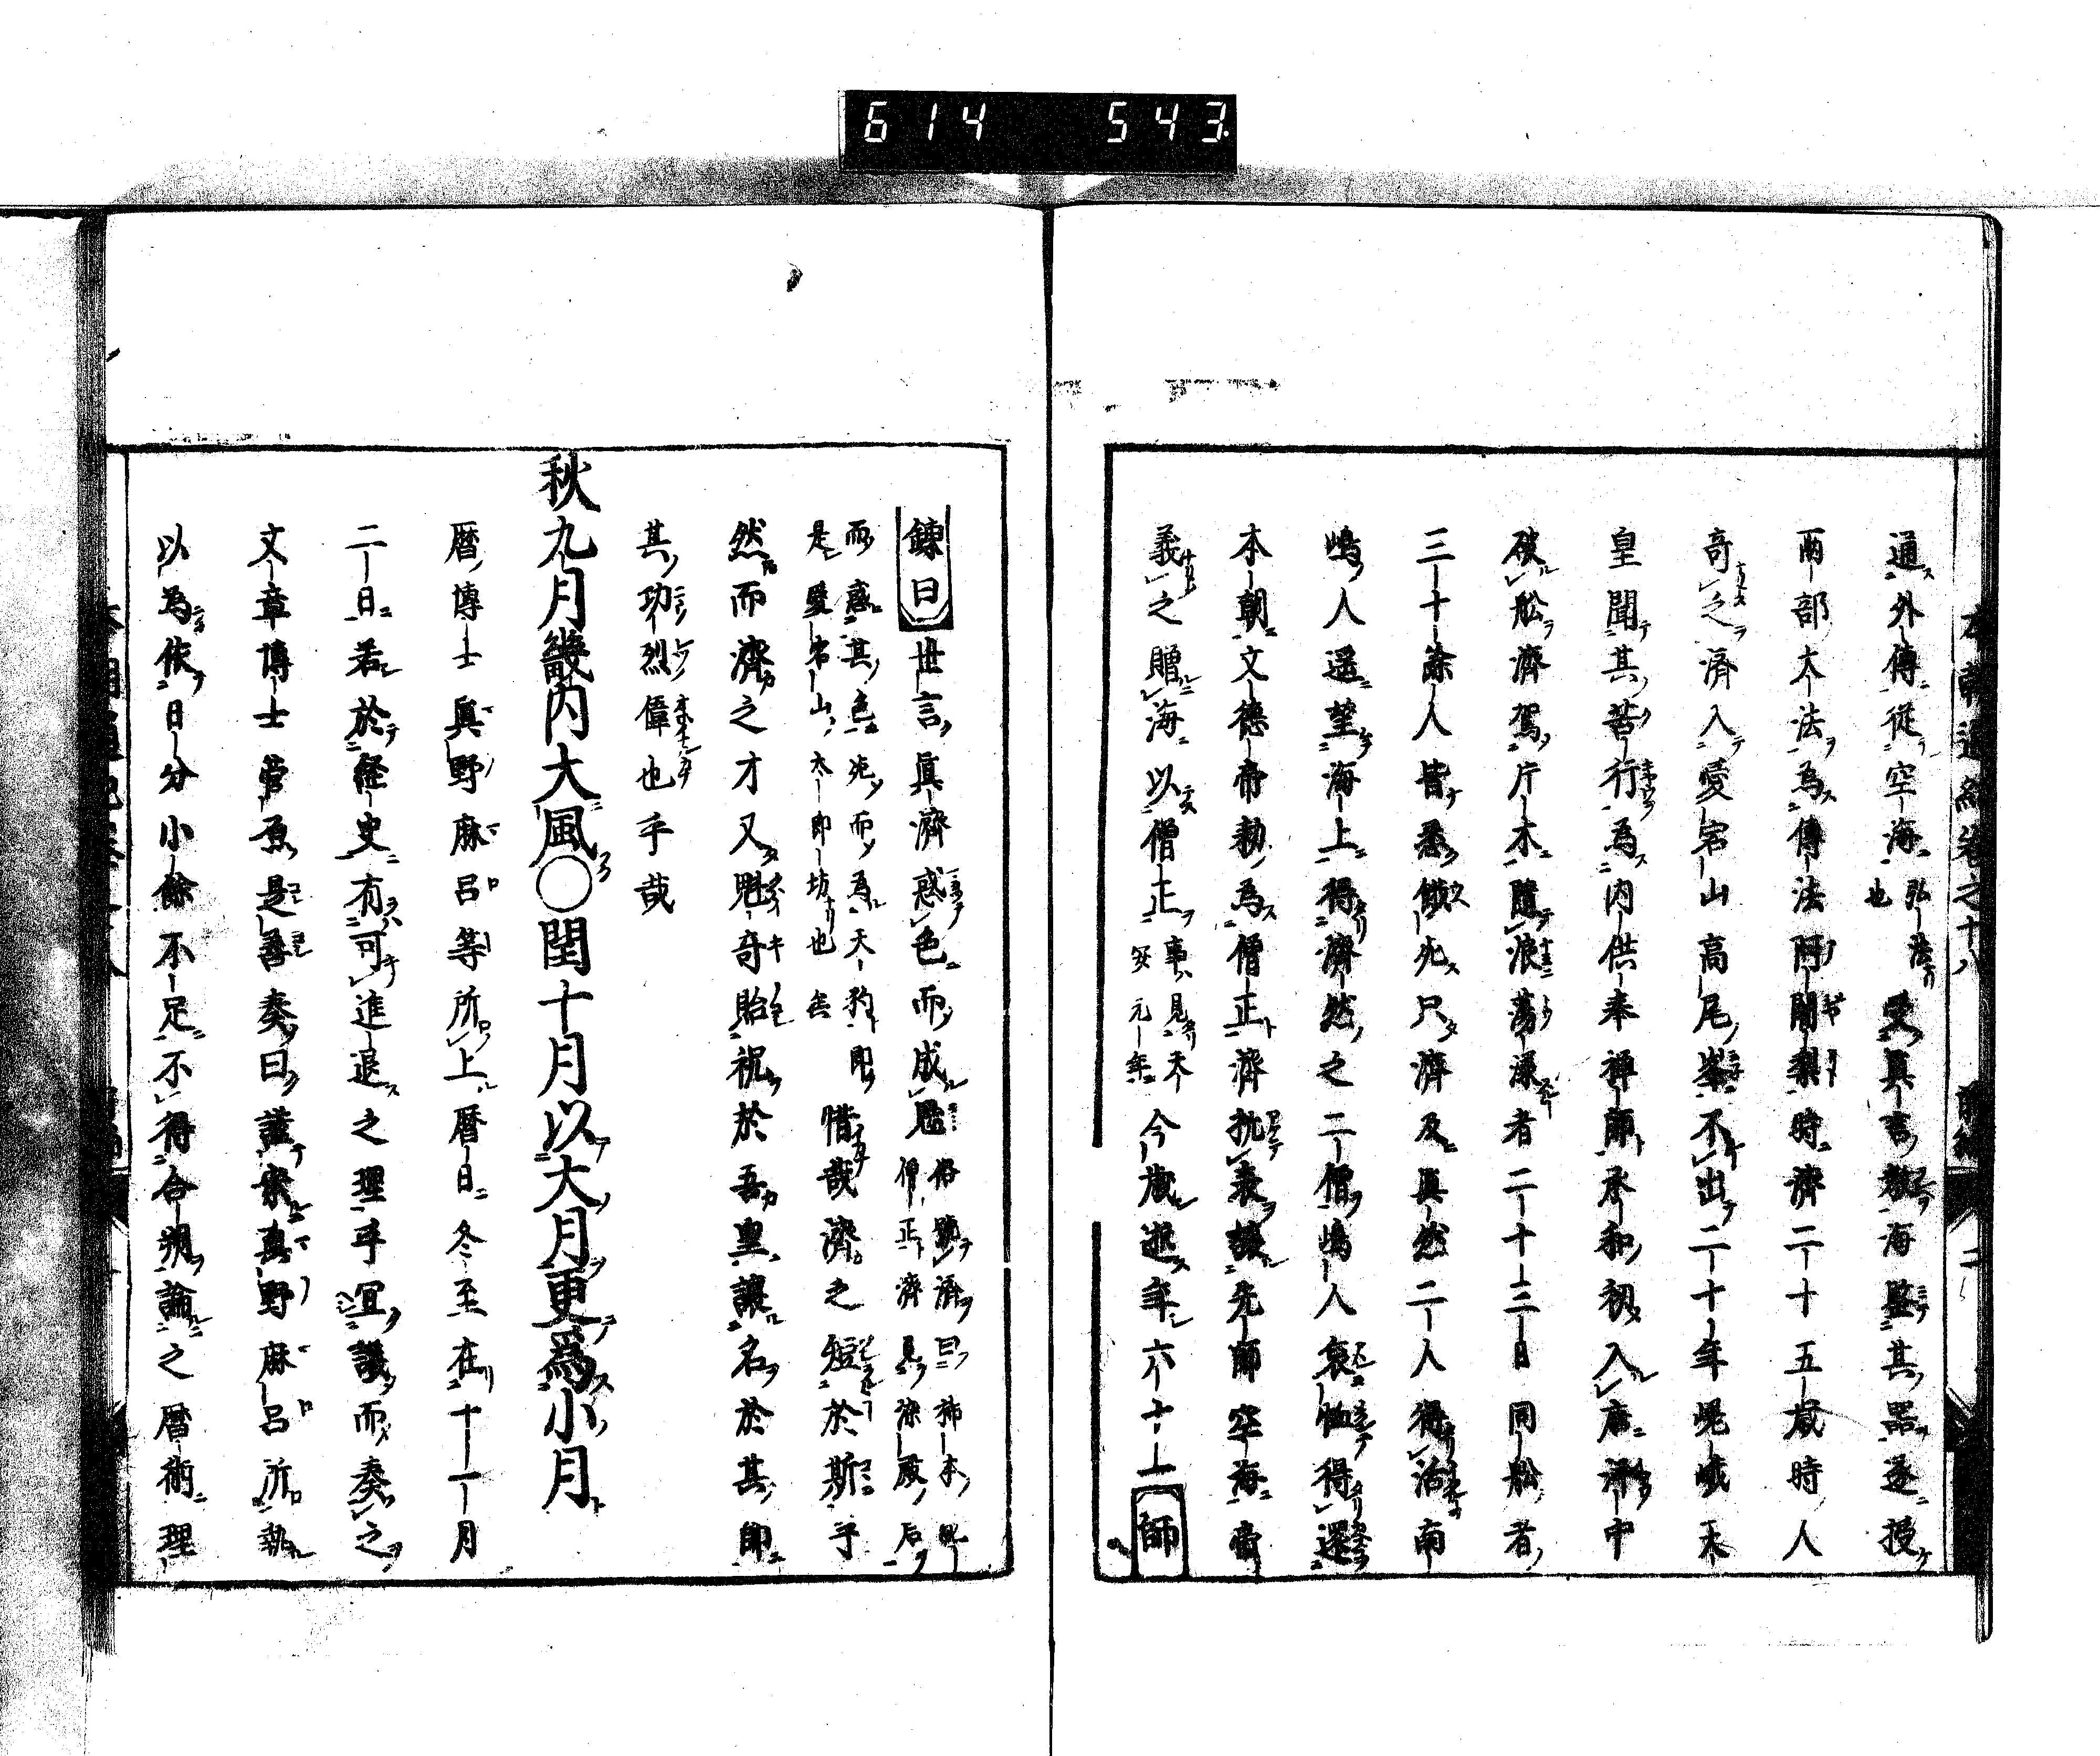 614 543
本朝通紀卷之十八 前編 二
通外傳從空海弘法也受真言教海監其器遂授
兩部大法為傳法阿闍梨時濟二十五歲時人
奇之濟入愛宕山高尾峯不出二十年嵯峨天
皇聞其苦行為内供奉禅師承和初入唐海中
破舩濟駕片木隨浪蕩漾者二十三日同舩者
三十餘人皆悉餓死只濟及真然二人得活南
嶋人遥望海上得濟然之二僧嶋人哀恤得還
本朝文德帝勅為僧正濟抗表讓先師空海帝
義之贈海以僧正事見天安元年今歲逝年六十上師
鍊曰世言真濟惑色而成鬼俗號濟曰柿本紀僧正濟見染殿后
而惑其色死而為天狗即是愛宕山太郎坊也云惜哉濟之短於斯乎
然而濟之才又魁奇貽祝於吾皇讓名於其師
其功烈偉也乎哉
秋九月畿内大風○閏十月以大月更爲小月
暦博士真野麻呂等所上暦日冬至在十一月
二日若於經史有可進退之理乎冝議而奏之
文章博士菅原是善奏曰謹案真野麻呂所執
以為依日分小餘不足不得合朔論之暦術理